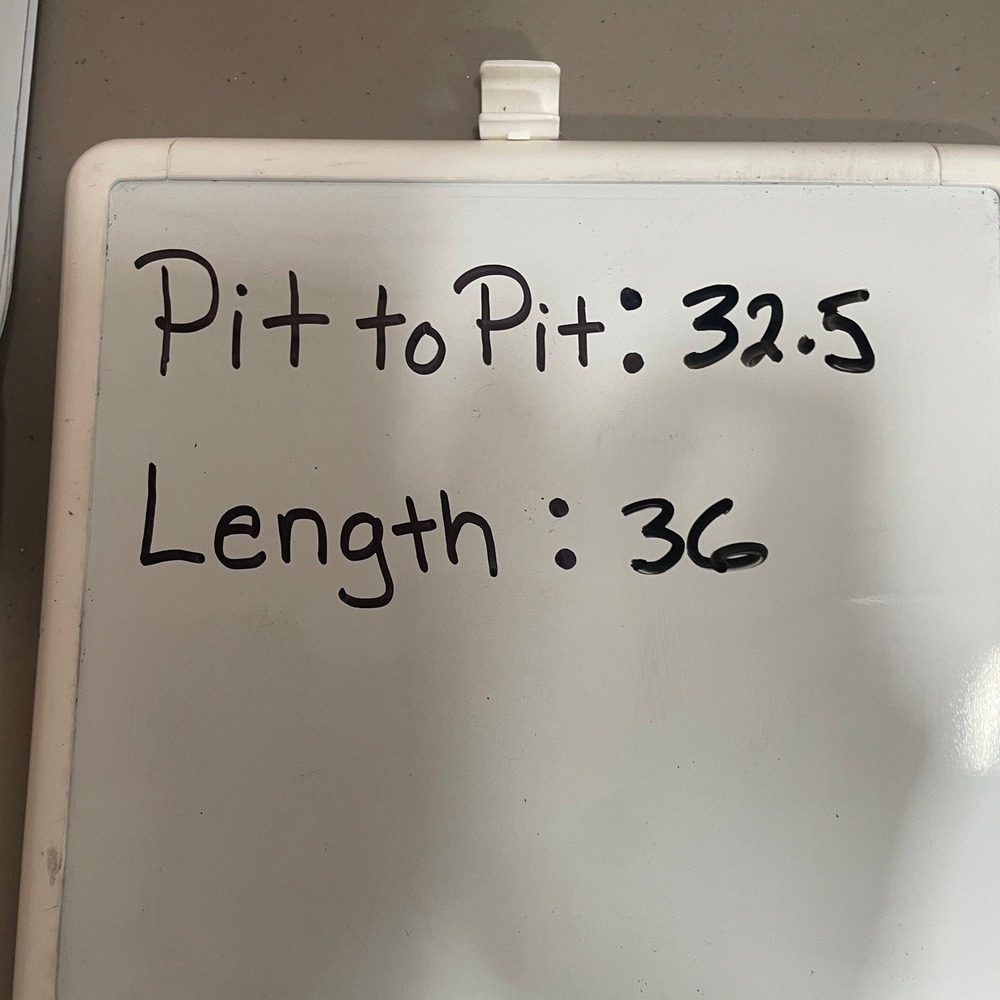 Pit to Pit: 32.5
Length: 36